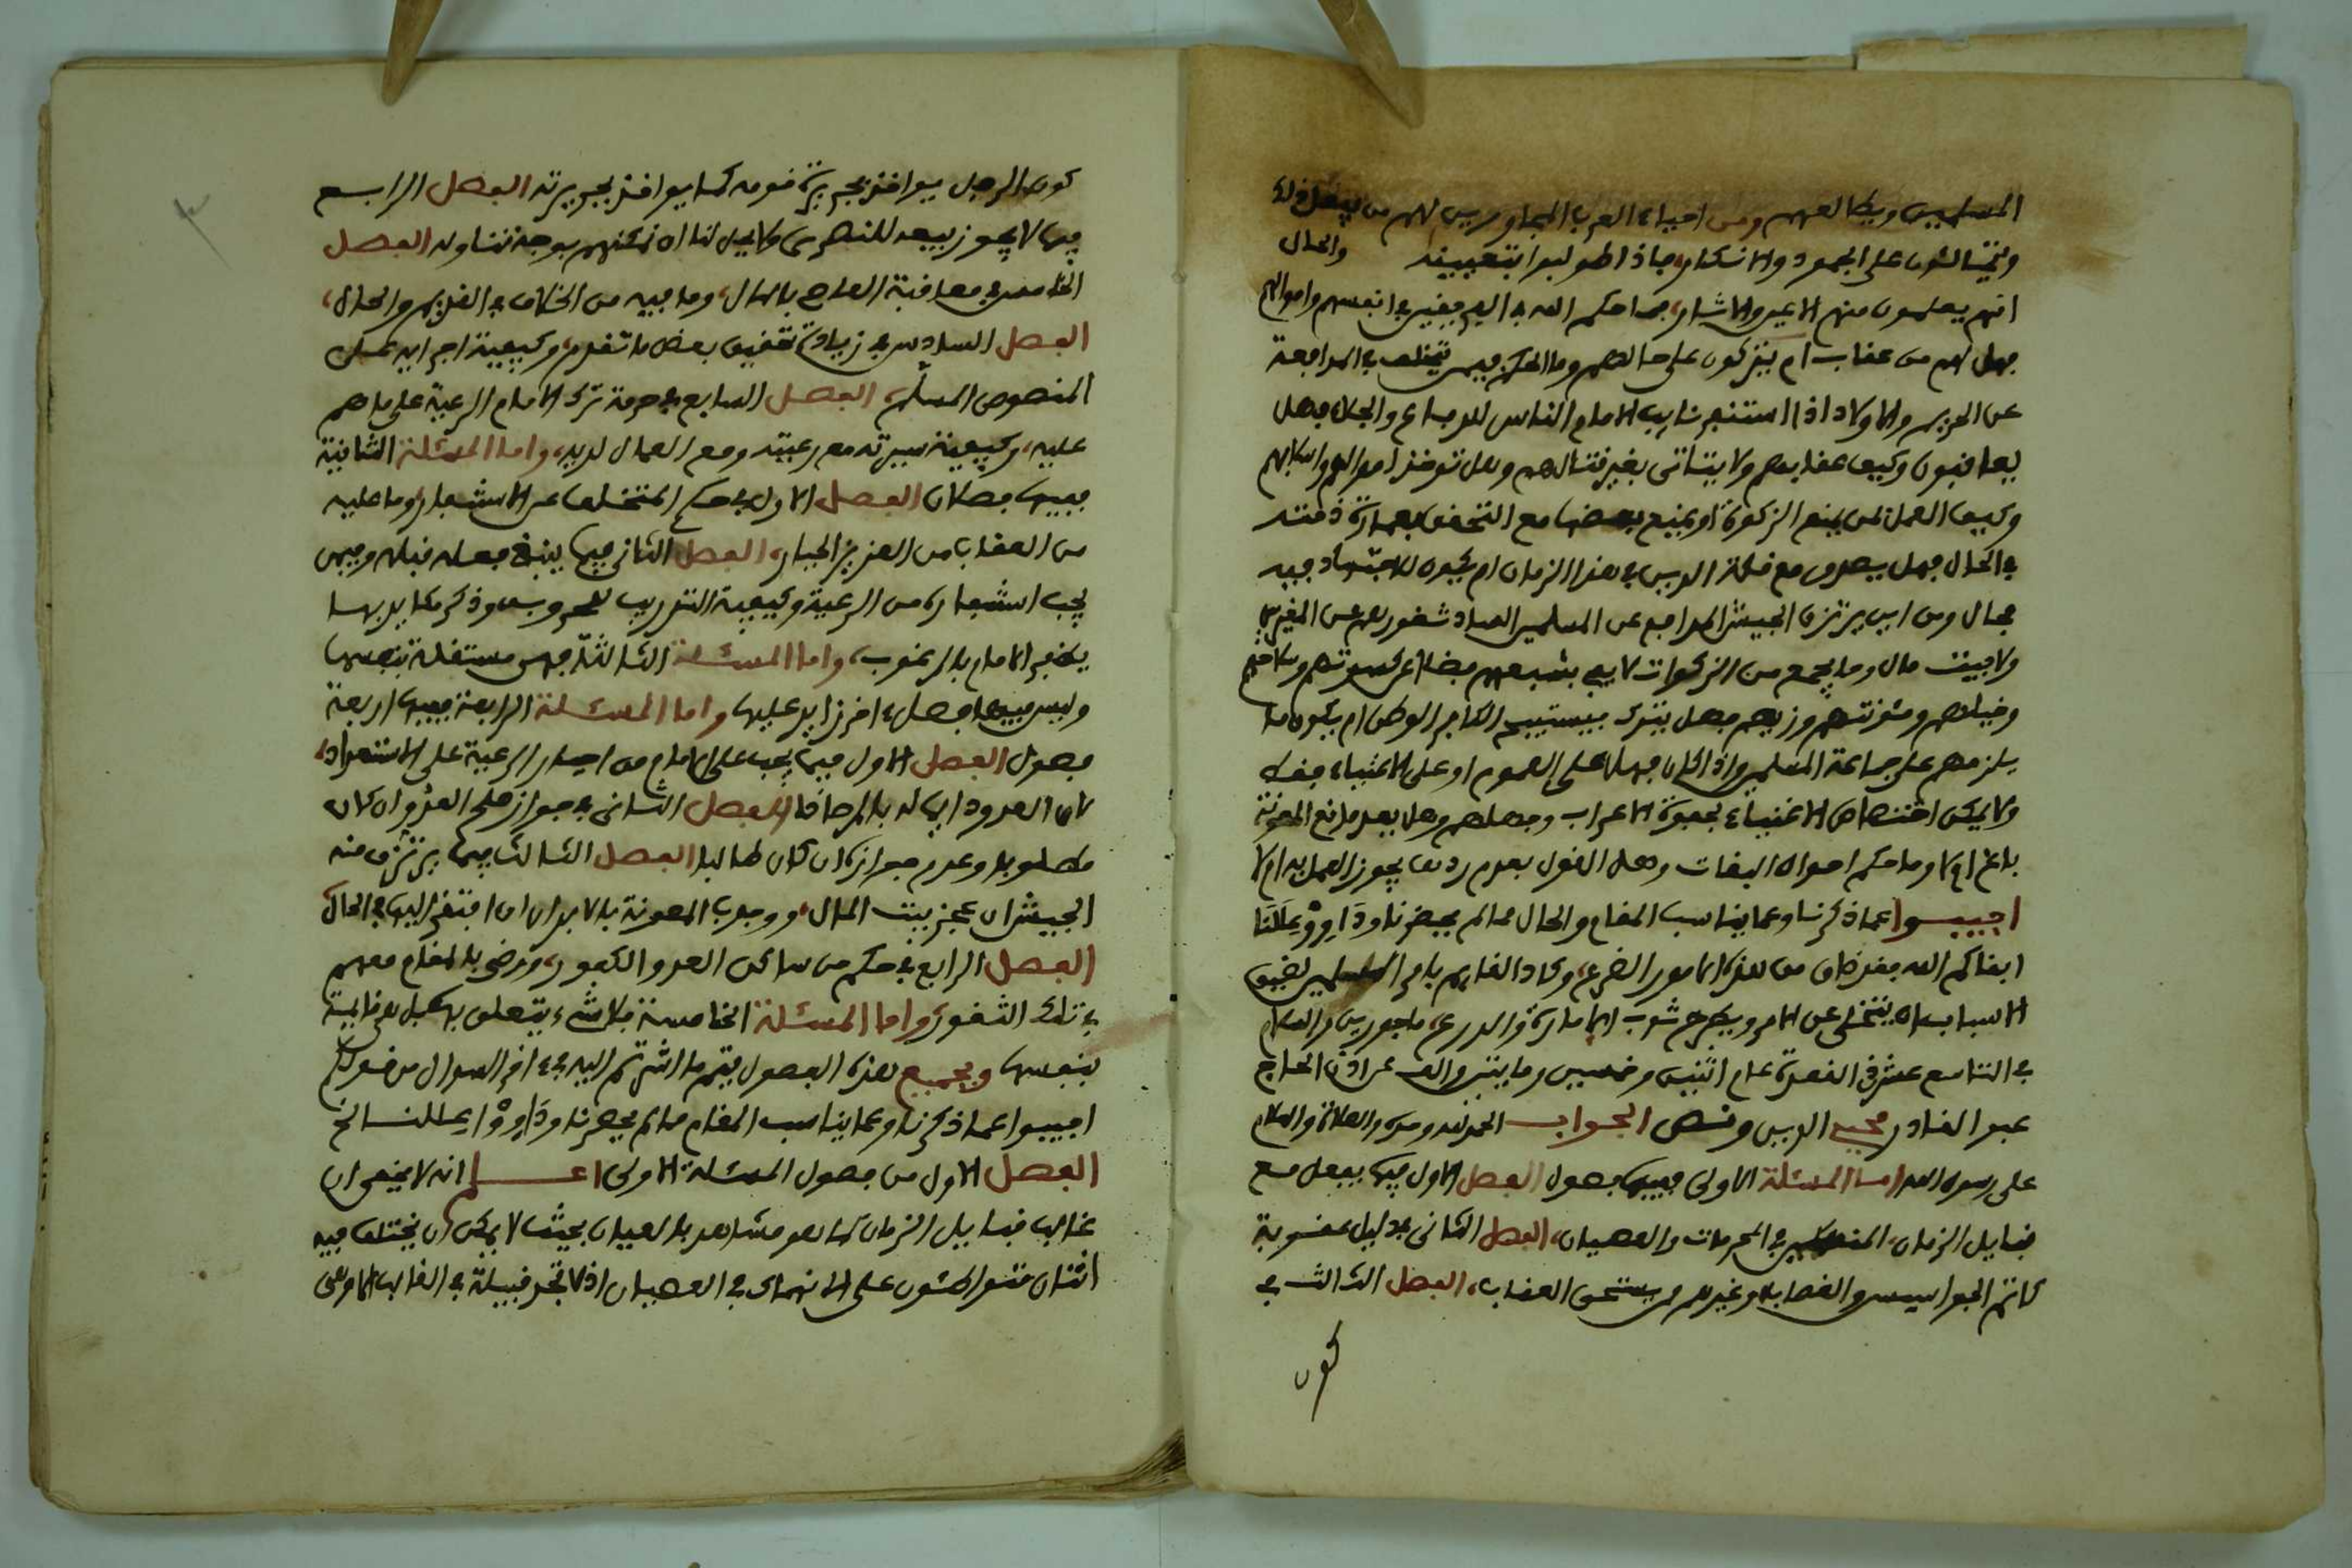 المسلمين ويطالعهم ومن احياء العرب المجاورين لهم من يفعل ذلك
ويتمالئون على الجحود والانكار، فاذا طولبوا بتعيينه والحال
انهم يعلمون منهم الاعين والاثار، فما حكم الله في الفريقين في انفسهم واموالهم
فهل لهم من عقاب ام يتركون على حالهم وما الحكم فيمن يتخلف في المدافعة
عن الحريم والاولاد اذا استنفر نايب الامام الناس للدفاع والجلاد فهل
يعاقبون وكيف عقابهم ولا يتاتى بغير قتالهم وهل توخذ اموالهم واسلابهم
وكيف العمل لمن يمنع الزكوة او يمنع بعضها مع التحقق بعمارة ذمته
في الحال فهل يصدق مع قلة الدين في هذا الزمان ام يكون للاجتهاد فيه
مجال ومن اين يرتزق الجيش المدافع عن المسلمين الساد ثغورهم عن المغيرين
ولا بيت مال وما يجمع من الزكوات لا يفي بشبعهم فضلا عن كسوتهم وسلاحهم
وخيلهم ومئونتهم وزيهم فهل يترك فيستبيح الكافر الوطن ام يكون ما
يلزمهم على جماعة المسلمين واذا كان فهل على العموم او على الاغنياء فقط
ولا يمكن اختصاص الاغنياء لجفوة الاعراب وجهلهم وهل يعد مانع المعونة
باغ ام لا وما حكم اموال البغات وهل القول بعدم ردها يجوز العمل به ام لا
اجيبوا عما ذكرنا وعما يناسب المقام والحال مما لم يحضرنا وَدَاوِوْا عِلَلَنَا
ابقاكم الله فقد ضاق من هذه الامور الذرع، وكاد القايم بامر المسلمين لضيق
الاسباب ان يتخلى عن الامر ويطرح ثوب الامارة والدرع، ماجورين والسلام
في التاسع عشر ذي القعدة عام اثنين وخمسين ومايتين والف عن اذن الحاج
عبد القادر محيي الدين ونص الجواب الحمد لله وحده والصلاة والسلام
على رسول الله اما المسئلة الاولى ففيها فصول الفصل الاول فيما يفعل مع
قبايل الزمان، المنهمكين في المحرمات والعصيان، الفصل الثاني في دليل عقوبة
كاتم الجواسيس والغصاب وغيرهم ممن يستحق العقاب، الفصل الثالث في
كون
كون الرجل يواخذ بجريرة قومه كما يواخذ بجريرته الفصل الرابع
فيما لا يجوز بيعه للنصرى ولا يحل لنا ان نمكنهم بوجه تناوله الفصل
الخامس في معاقبة العاصي بالمال، وما فيه من الخلاف في القديم والحال،
الفصل السادس في زيادة تحقيق بعض ما تقدم، وكيفية اجرايه على
المنصوص المسلم، الفصل السابع في حرمة ترك الامام الرعية على ما هم
عليه، وكيفية سيرته مع رعيته ومع العمال لديه، واما المسئلة الثانية
ففيها فصلان الفصل الاول في حكم المتخلف عن الاستنفار، وما عليه
من العقاب من العزيز الجبار، الفصل الثاني فيما ينبغي فعله قبله وفيمن
يجب استنفاره من الرعية وكيفية التدريب للحروب وذكر مكايد بها
يظفر الامام بالمرغوب، واما المسئلة الثالثة فهي مستقلة بنفسها
وليس فيها فصل اخر زايد عليها واما المسئلة الرابعة ففيها اربعة
فصول الفصل الاول فيما يجب على الامام من اجبار الرعية على الاستعداد،
لان العدو دايما له بالمرصاد الفصل الثاني في جواز صلح العدو ان كان
مطلوبا وعدم جوازه ان كان طالبا الفصل الثالث فيما يرتزق منه
الجيش ان عجز بيت المال، ووجوب المعونة بالابدان ان افتقر اليها في الحال
الفصل الرابع في حكم من ساكن العدو الكفور، ورضي بالمقام معهم
في تلك الثغور، واما المسئلة الخامسة فلا شيء يتعلق بها بل هي قايمة
بنفسها وبجميع هذه الفصول يتم ما اشرتم اليه في اخر السوال من قولكم
اجيبوا عما ذكرنا وعما يناسب المقام مما لم يحضرنا وَدَاوِوْا عللنا الخ
الفصل الاول من فصول المسئلة الاولى اعلم انه لا يخفى ان
غالب قبايل الزمان كما هو مشاهد بالعيان بحيث لا يمكن ان يختلف فيه
اثنان متواطئون على الانهماك في العصيان اذ لا تجد قبيلة في الغالب الا وهي